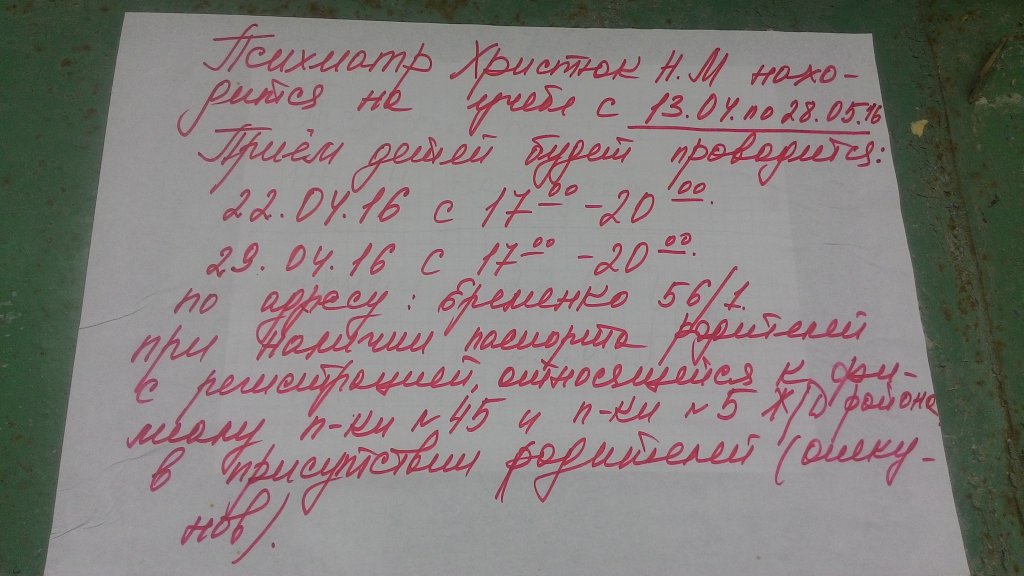 Психиатр Христюк Н.М нахо-
дится на учебе с 13.04. по 28.05.16
Приём детей будет проводится:
22.04.16 с 17⁰⁰-20⁰⁰.
29.04.16 с 17⁰⁰-20⁰⁰.
по адресу: Еременко 56/1.
при наличии паспорта родителей
с регистрацией, относящейся к фи-
лиалу п-ки №45 и п-ки №5 Ж/Д района
в присутствии родителей (опеку-
нов).